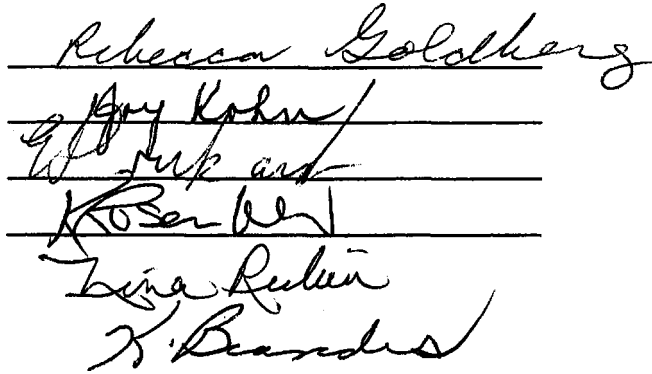 Rebecca Goldberg
Joy Kohn
K Rosen
Nina Rubin
K. Brandes